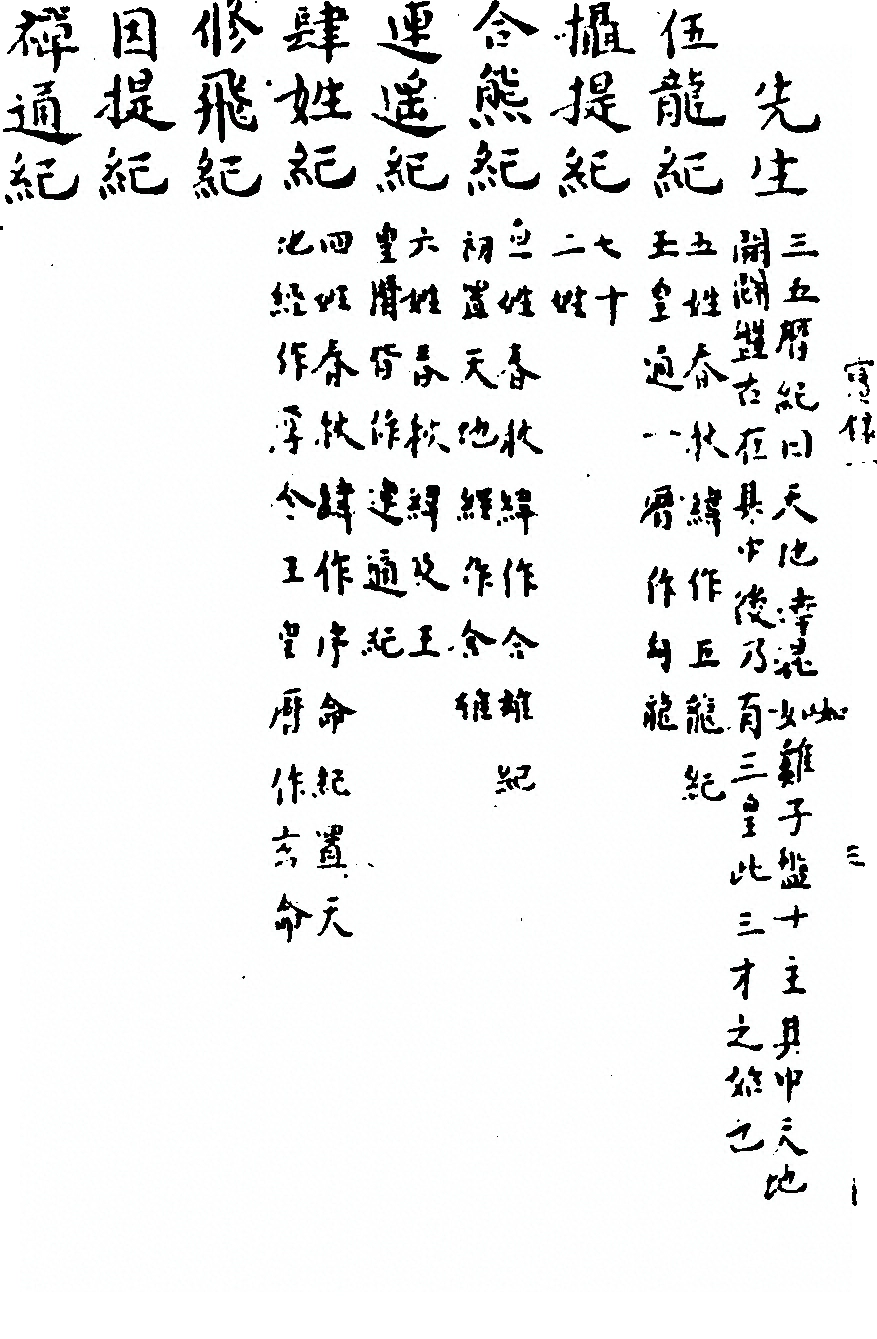 三
先生
三五曆紀曰天地渾混如雞子盤十主其中天地
開闢盤古在其中後乃有三皇此三才之始也
伍龍紀
五姓春秋緯作巨龍紀
王皇通一曆作勾龍
攝提紀
七十
二姓
合熊紀
姓春秋緯作合雄紀
初置天地經作含雄
連遥紀
六姓春秋緯及王
皇曆皆作連通紀
肆姓紀
四姓春秋緯作序命紀置天
地經作厚令王皇曆作玄命
修飛紀
因提紀
禪通紀